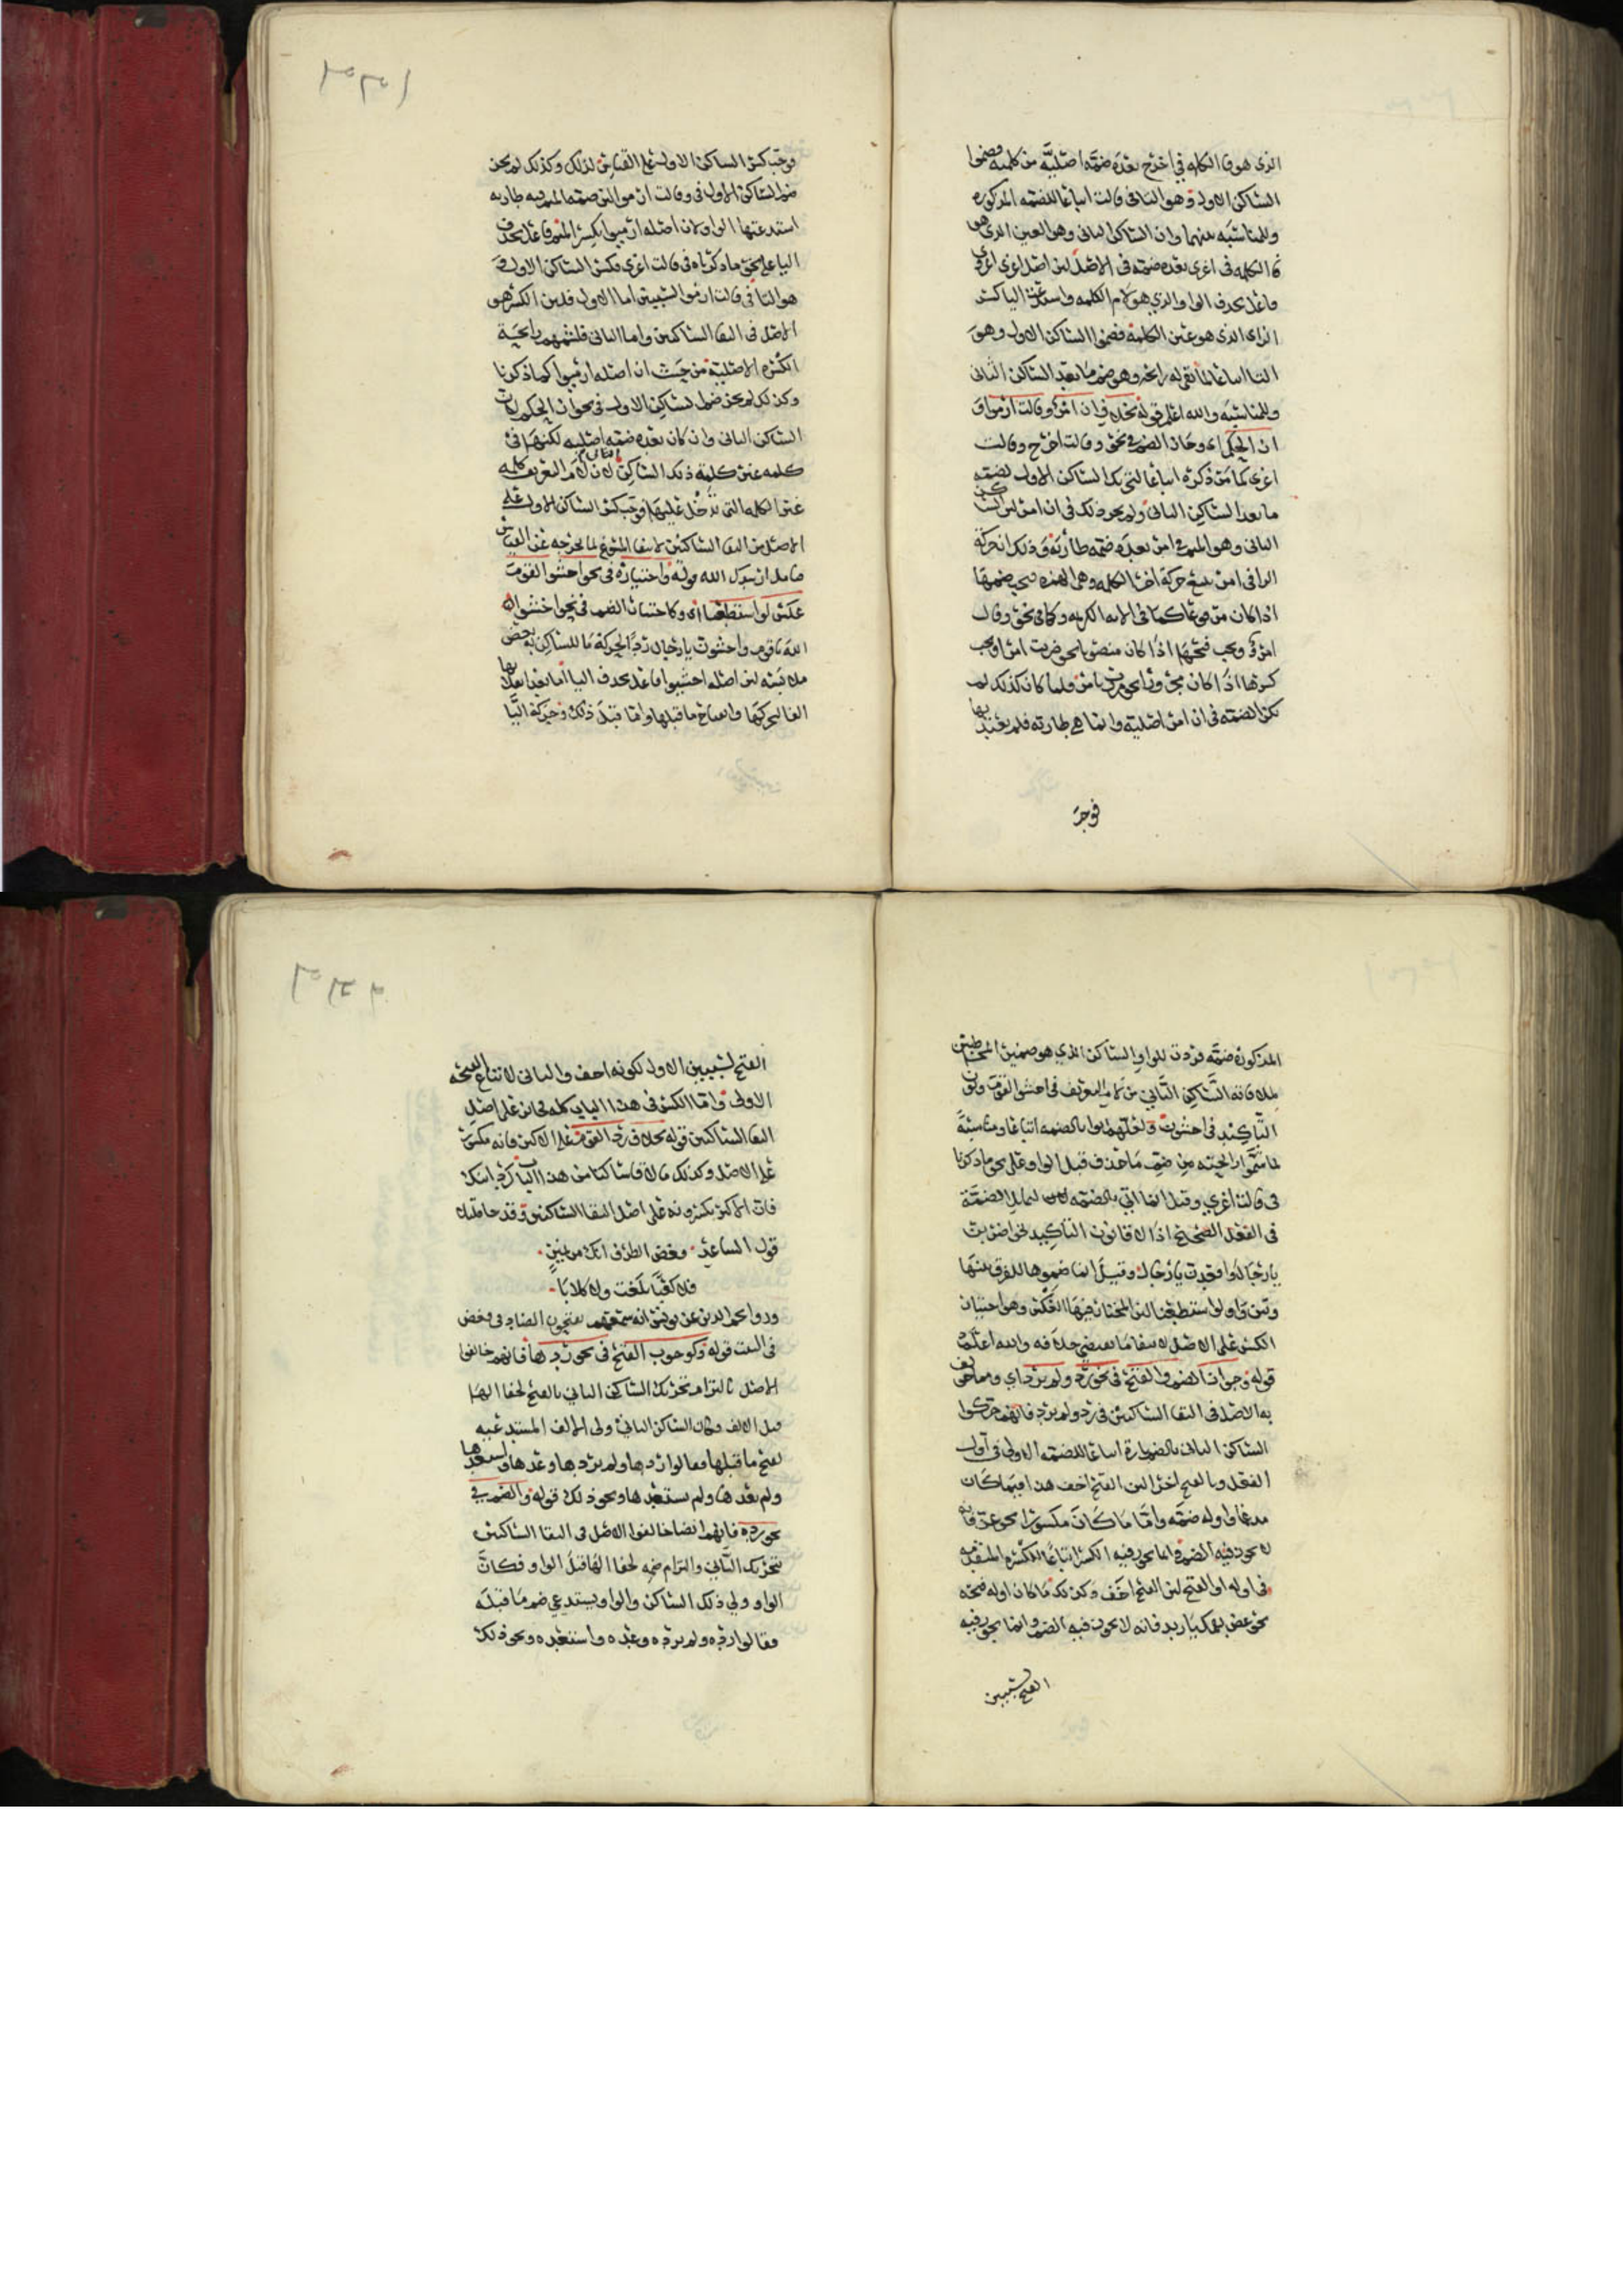 الذي هو فا الكلمه في اخرج بعده ضمة اصليَّه من كلمته فضموا
الساكن الاول وهو التا في قالت اتباعا للضمه المذكوره
وللمناسبه بينهما وان الساكن الثاني وهو الغين الذي هو
فا الكلمه في اغزي بعده ضمة في الاصل لان اصل اغزي اغزوي
فاعل بحذف الواو الذي هو لام الكلمه واستدعت اليا كسر
الزاي الذي هو عين الكلمة فضموا الساكن الاول وهو
التا اتباعا لما بعد الساكن الثاني
وللمناسبه والله اعلم قوله بخلاف ان امرؤ وقالت ارموا و
ان الحكم اي وجاز الضم في نحو وقالت اخرج وقالت
اغزي لما مر ذكره اتباعا لتحريك الساكن الاول لضمة
ما بعد الساكن الثاني ولم يجز ذلك في ان امرؤ لان الساكن
الثاني وهو الميم في امرؤ بعده ضمة طارئة وذلك ان حركة
الرا في امرؤ تتبع حركة اخر الكلمه وهي الهمزه فيجب ضمها
اذا كان مرفوعا كما في الايه الكريمه وكما في نحو وقال
امرؤ ويجب فتحها اذا كان منصوبا نحو ضربت امرا ويجب
كسرها اذا كان مجرورا نحو مررت بامرئ فلما كان كذلك لم
تكن الضمة في ان امرؤ اصلية وانما هي طارئة فلم يعتد بها
فوجب
فوجب كسر الساكن الاول على القياس لذلك وكذلك لم يجز
ضم الساكن الاول في وقالت ارموا لان ضمة الميم فيه طاريه
استدعتها الواو لان اصله ارميوا بكسر الميم فاعل بحذف
اليا على نحو ما ذكرناه في قالت اغزي فكسر الساكن الاول و
هو التا في قالت ارموا لشيئين اما الاول فلان الكسر هو
الاصل في التقا الساكنين واما الثاني فلشمهم رايحة
الكسره الاصلية من حيث ان اصله ارميوا كما ذكرنا
وكذلك لم يجز ضم الساكن الاول في نحو ان الحكم لان
الساكن الثاني وان كان بعده ضمة اصليه لكنها في
كلمه غير كلمة ذلك الساكن الثاني لان لام التعريف كلمه
غير الكلمه التي تدخل عليها فوجب كسر الساكن الاول على
الاصل من التقا الساكنين لانتفا المسوغ لما يخرجه عن القياس
قوله واختياره في نحو اخشوا القوم
عكس لو استطعنا اي وكاختيار الضم في نحو اخشوا
الله يا قوم واخشون يا رجال
لان اصله اخشيوا فاعل بحذف اليا اما بعد اعلالها
الفا لتحركها وانفتاح ما قبلها واما قبل ذلك وحركة اليا
المذكوره ضمة فردت للواو الساكن الذي هو ضمير المخاطبين
لملاقاته الساكن الثاني من لام التعريف في اخشوا القوم ونون
التاكيد في اخشون ولعلهم اتوا بالضمه اتباعا ومناسبة
لما شموا رايحته من ضم ما حذف قبل الواو على نحو ما ذكرنا
في قالت اغزي وقيل انما اتي بالضمه لتماثل الضمة
في الفعل الصحيح اذا لاقا نون التاكيد نحو اضربن
يا رجال وقيل انما ضموها للفرق بينها
وبين واو لو استطعنا لان المختار فيها العكس وهو اختيار
الكسر على الاصل لانتفا ما يقتضي خلافه والله اعلم
قوله وجواز الضم والفتح في نحو رد ولم يرد اي ومما خولف
به الاصل في التقا الساكنين في رد ولم يرد فانهم حركوا
الساكن الثاني بالضم تارة اتباعا للضمه الاولى في اول
الفعل وبالفتح اخرى لان الفتح اخف هذا فيما كان
مدغما واوله ضمة واما ما كان مكسورا نحو عد فانه
لا يجوز فيه الضم وانما يجوز فيه الكسر اتباعا للكسره المتقدمه
في اوله او الفتح لان الفتح اخف وكذلك ما كان اوله فتحه
نحو عض يا زيد فانه لا يجوز فيه الضم وانما يجوز فيه
الفتح لشيئين
الفتح لشيئين الاول لكونه اخف والثاني لاتباع الفتحه
الاولى واما الكسر في هذا الباب كله فجائز على اصل
التقا الساكنين قوله بخلاف رد القوم على الاكثر فانه مكسور
على الاصل وكذلك ما لاقا ساكنا من هذا الباب كرد ابنك
فان الاكثر يكسرونه على اصل التقا الساكنين وقد جا مثل
قول الشاعر فغض الطرف انك من نمير
فلا كعبا بلغت ولا كلابا
وروا عن يونس انه سمعهم يفتحون الضاد في فغض
في البيت قوله وكوجوب الفتح في نحو ردها فانهم خالفوا
الاصل بالتزام تحريك الساكن الثاني بالفتح لخفا الها
قبل الالف وكان الساكن الثاني ولي الالف المستدعيه
لفتح ما قبلها فقالوا ردها ولم يردها وعدها واستعدها
ولم يعدها ولم يستعدها ونحو ذلك قوله والضم في
نحو رده فانهم ايضا خالفوا الاصل في التقا الساكنين
بتحريك الثاني والتزام ضمه لخفا الها قبل الواو فكان
الواو ولي ذلك الساكن والواو يستدعي ضم ما قبله
فقالوا رده ولم يرده وعده واستعده ونحو ذلك